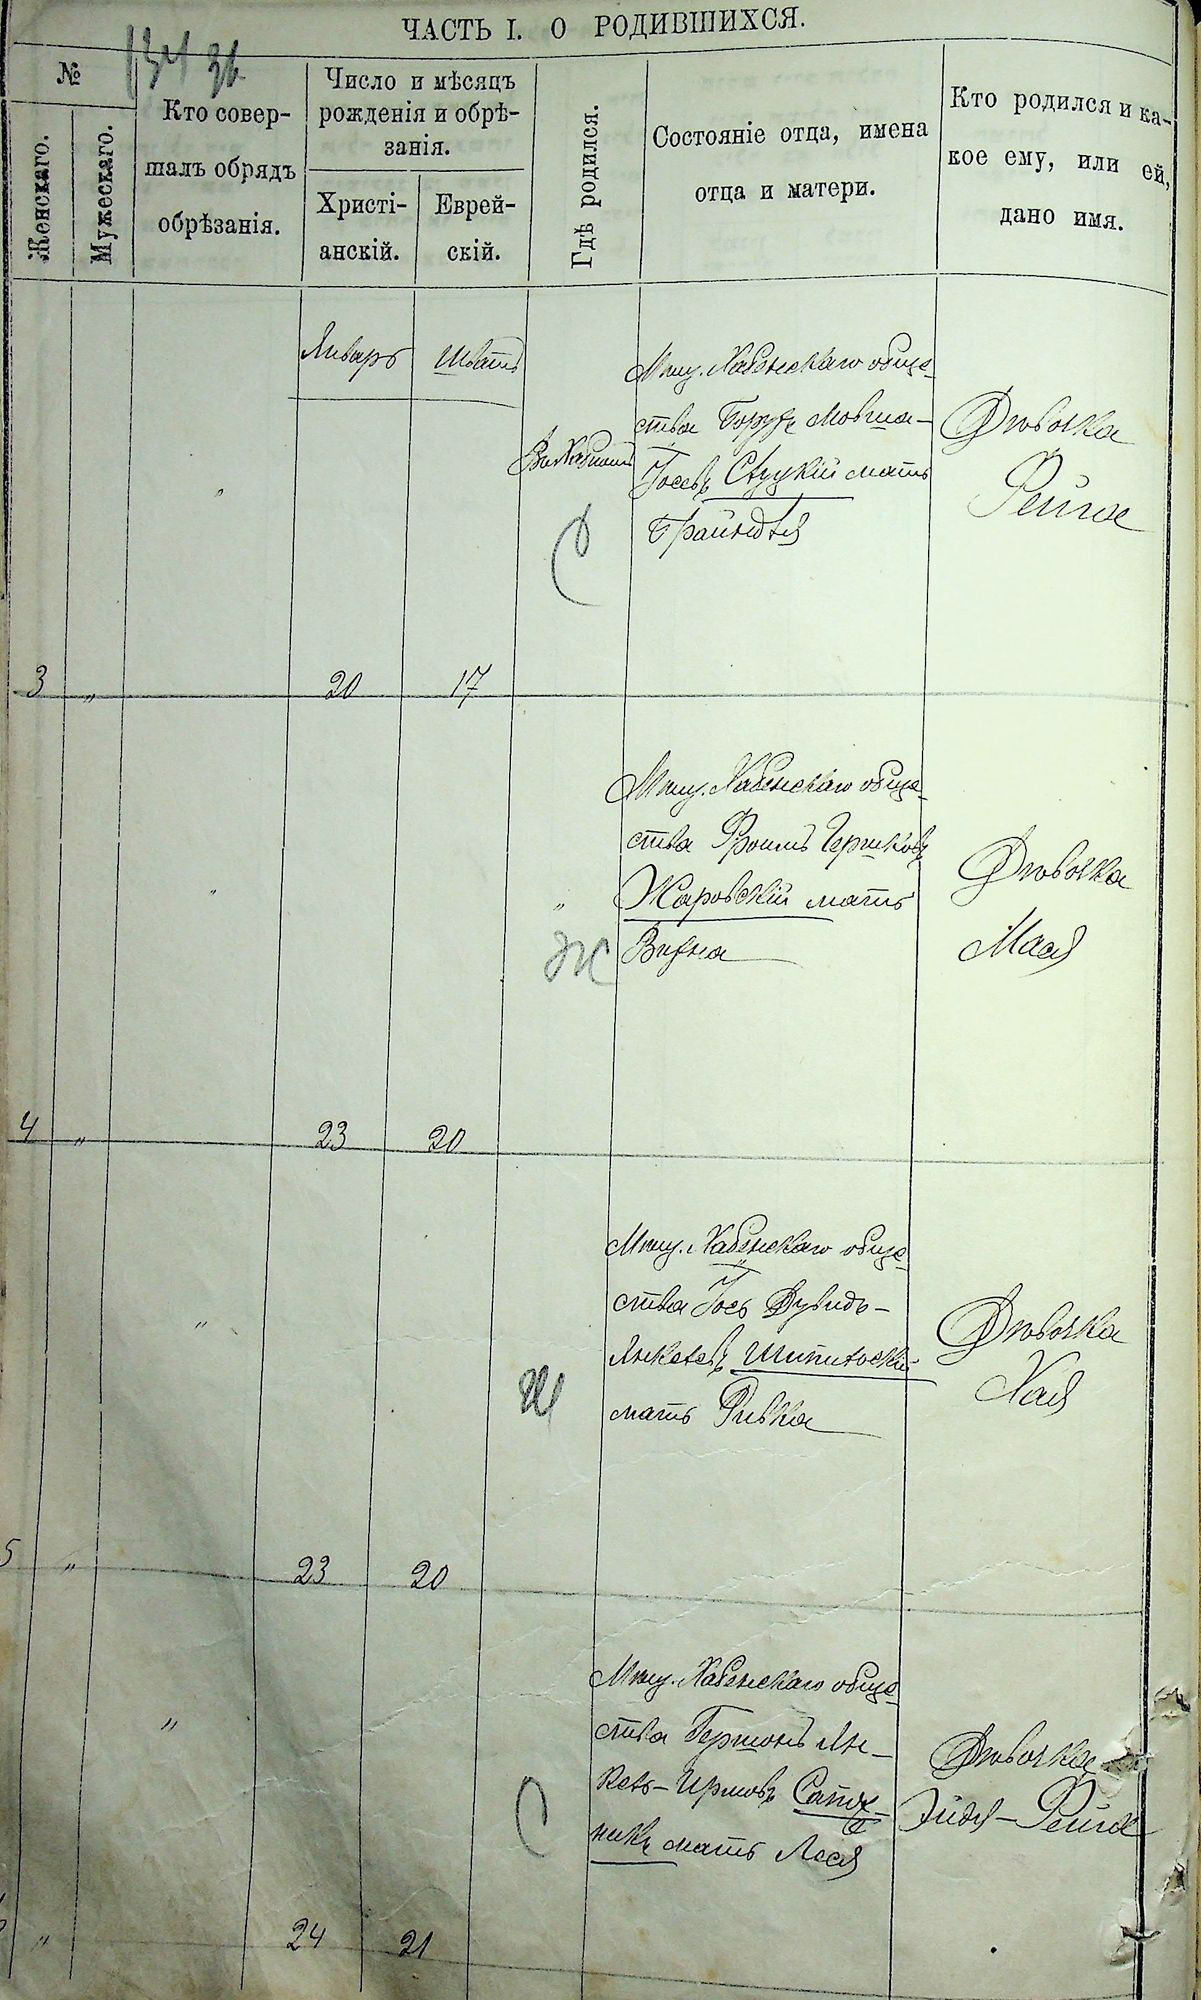 ЧАСТЬ I. О РОДИВШИХСЯ.
№
Женскаго.
Мужескаго.
Кто совер-
шалъ обрядъ
обрѣзанія.
Число и мѣсяцъ
рожденія и обрѣ-
занія.
Христі-
анскій.
Еврей-
скій.
Гдѣ родился.
Состояніе отца, имена
отца и матери.
Кто родился и ка-
кое ему, или ей,
дано имя.
Январь
Шватъ
Мѣщ. Хабенскаго обще-
ства Борухъ Мовша-
Іосевъ Слуцкій мать
Брайндля
Дѣвочка
Рейза
С
3 " " 20 17
Мѣщ. Хабенскаго обще-
ства Фроимъ Гершковъ
Жаровскій мать
Дѣвочка
Мася
" Ж
4 " " 23 20
Мѣщ. Хабенскаго обще-
ства Іось Дувидъ-
Янкелевъ
мать Ривка
Дѣвочка
Хая
Ш
5 " " 23 20
Мѣщ. Хабенскаго обще-
ства Гершонъ Ян-
кель-
никъ мать Лея
Дѣвочка
Эйдя-Рейза
С
" " 24 21